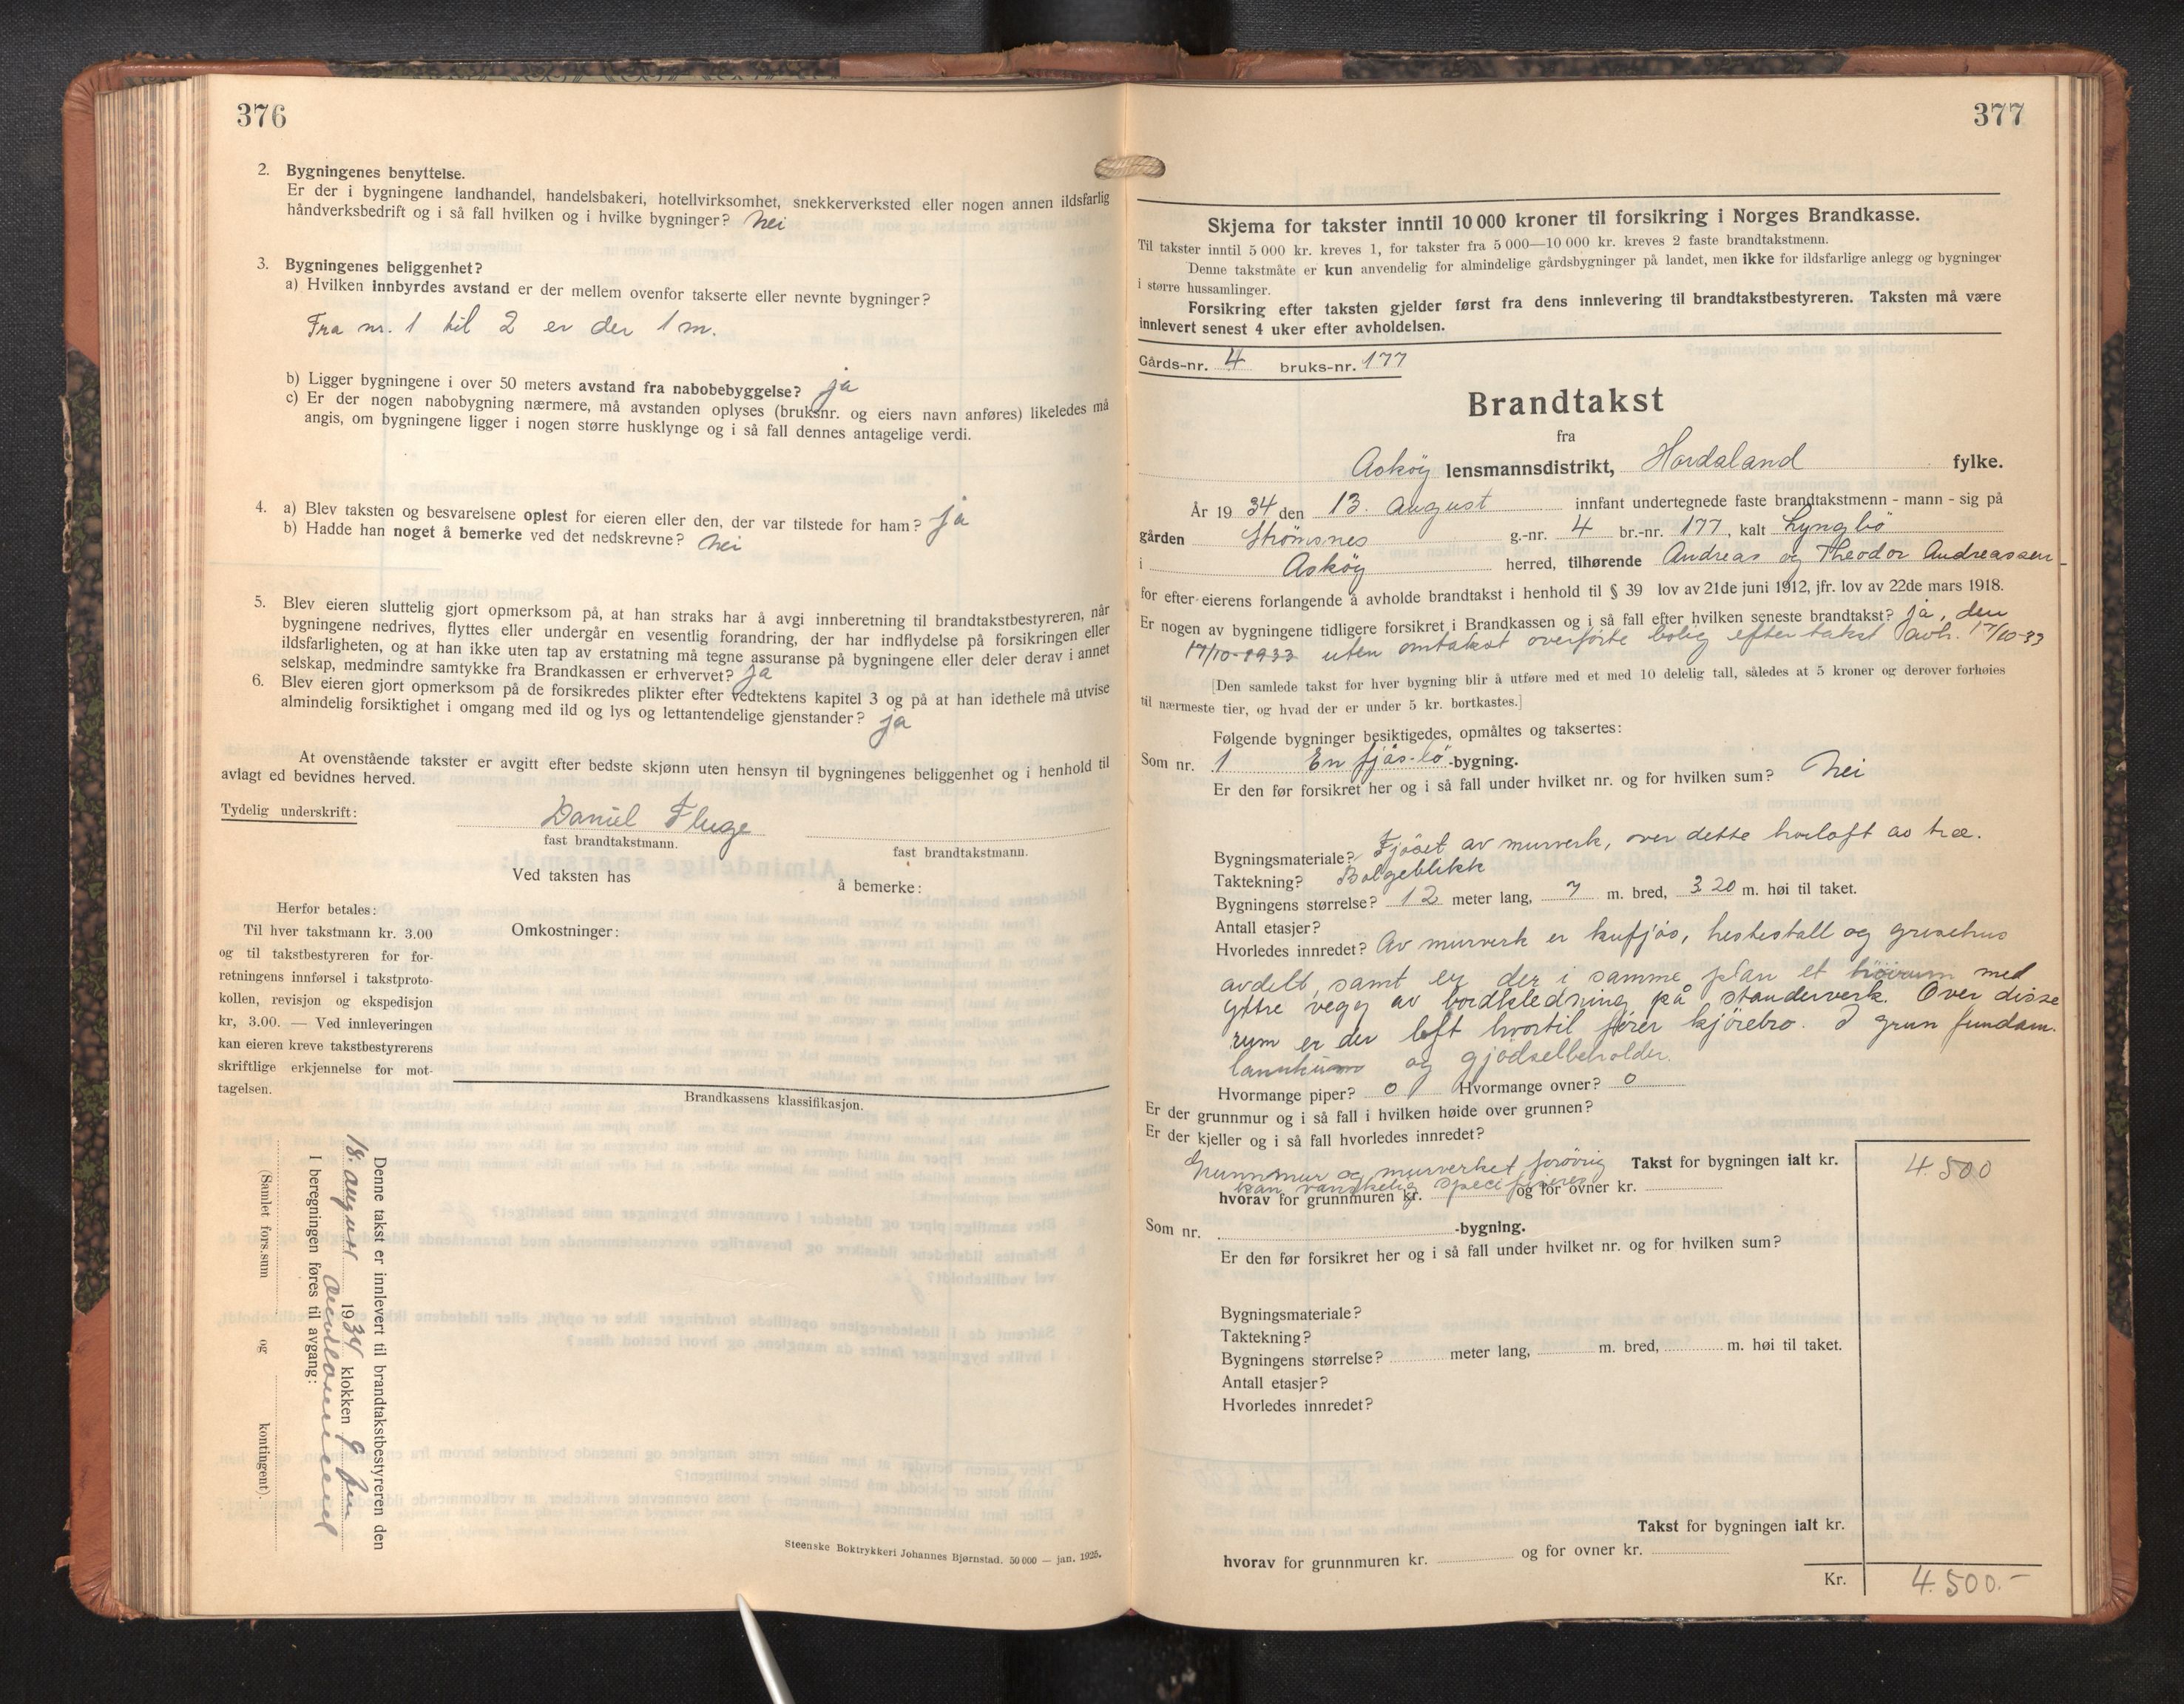 376
2. Bygningenes benyttelse.
Er der i bygningene landhandel, handelsbakeri, hotellvirksomhet, snekkerverksted eller nogen annen ildsfarlig
håndverksbedrift og i så fall hvilken og i hvilke bygninger? nei
3. Bygningenes beliggenhet?
a) Hvilken innbyrdes avstand er der mellem ovenfor takserte eller nevnte bygninger?
Fra nr. 1 til 2 er der 1 m.
b) Ligger bygningene i over 50 meters avstand fra nabobebyggelse? ja
c) Er der nogen nabobygning nærmere, må avstanden oplyses (bruksnr. og eiers navn anføres) likeledes må
angis, om bygningene ligger i nogen større husklynge og i så fall dennes antagelige verdi.
4. a) Blev taksten og besvarelsene oplest for eieren eller den, der var tilstede for ham? ja
b) Hadde han noget å bemerke ved det nedskrevne? nei
5. Blev eieren sluttelig gjort opmerksom på, at han straks har å avgi innberetning til brandtakstbestyreren, når
bygningene nedrives, flyttes eller undergår en vesentlig forandring, der har indflydelse på forsikringen eller
ildsfarligheten, og at han ikke uten tap av erstatning må tegne assuranse på bygningene eller deler derav i annet
selskap, medmindre samtykke fra Brandkassen er erhvervet? ja
6. Blev eieren gjort opmerksom på de forsikredes plikter efter vedtektens kapitel 3 og på at han idethele må utvise
almindelig forsiktighet i omgang med ild og lys og lettantendelige gjenstander? ja
At ovenstående takster er avgitt efter bedste skjønn uten hensyn til bygningenes beliggenhet og i henhold til
avlagt ed bevidnes herved.
Tydelig underskrift: Daniel Fluge
fast brandtakstmann. fast brandtakstmann.
Ved taksten has å bemerke:
Herfor betales:
Til hver takstmann kr. 3.00
og til takstbestyreren for for-
retningens innførsel i takstproto-
kollen, revisjon og ekspedisjon
kr, 3.00. — Ved innleveringen
kan eieren kreve takstbestyrerens
skriftlige erkjennelse for mot-
tagelsen.
Omkostninger:
Brandkassens klassifikasjon.
Denne takst er innlevert til brandtakstbestyreren den
18. august 1934 klokken 9 fm
I beregningen føres til avgang:
(Samlet fors.sum og kontingent).
Steenske Boktrykkeri Johannes Bjørnstad. 50 000 — jan. 1925.
377
Skjema for takster inntil 10 000 kroner til forsikring i Norges Brandkasse.
Til takster inntil 5 000 kr. kreves 1, for takster fra 5 000—10 000 kr. kreves 2 faste brandtakstmenn.
Denne takstmåte er kun anvendelig for almindelige gårdsbygninger på landet, men ikke for ildsfarlige anlegg og bygninger
i større hussamlinger.
Forsikring efter taksten gjelder først fra dens innlevering til brandtakstbestyreren. Taksten må være
innlevert senest 4 uker efter avholdelsen.
Gårds-nr. 4 bruks-nr. 177
Brandtakst
fra
Askøy lensmannsdistrikt, Hordaland fylke.
År 1934 den 13. august innfant undertegnede faste brandtakstmenn - mann - sig på
gården Strømsnes g.-nr. 4 br.-nr. 177, kalt Lyngbö
i Askøy herred, tilhørende Andreas og Theodor Andreassen
for efter eierens forlangende å avholde brandtakst i henhold til § 39 lov av 21de juni 1912, jfr. lov av 22de mars 1918.
Er nogen av bygningene tidligere forsikret i Brandkassen og i så fall efter hvilken seneste brandtakst? ja, den
17/10-1933 uten omtakst overførte bolig efter takst avh. 17/10-33
[Den samlede takst for hver bygning blir å utføre med et med 10 delelig tall, således at 5 kroner og derover forhøies
til nærmeste tier, og hvad der er under 5 kr. bortkastes.]
Følgende bygninger besiktigedes, opmåltes og taksertes:
Som nr. 1 En fjös-lö-bygning.
Er den før forsikret her og i så fall under hvilket nr. og for hvilken sum? Nei
Bygningsmateriale? Fjöset av murverk, over dette høiloft av træ.
Taktekning? Bølgeblikk
Bygningens størrelse? 12 meter lang, 7 m. bred, 3 20 m. høi til taket.
Antall etasjer?
Hvorledes innredet? Av murverk er kufjøs, hestestall og grisehus
avdelt, samt er der i samme plan et höirum med
yttre vegg av bordkledning på standerverk. Over disse
rum er der loft hvortil fører kjörebro. I grun fundam.
og gjödselbeholder.
Hvormange piper? 0 Hvormange ovner? 0
Er der grunnmur og i så fall i hvilken høide over grunnen?
Er der kjeller og i så fall hvorledes innredet?
Grunnmur og murverket forøvrig Takst for bygningen ialt kr. 4 500
kan vanskelig specifiseres
hvorav for grunnmuren kr. og for ovner kr.
Som nr. -bygning.
Er den før forsikret her og i så fall under hvilket nr. og for hvilken sum?
Bygningsmateriale?
Taktekning?
Bygningens størrelse? meter lang, m. bred, m. høi til taket.
Antall etasjer?
Hvorledes innredet?
Takst for bygningen ialt kr.
hvorav for grunnmuren kr. og for ovner kr.
Kr. 4.500.-